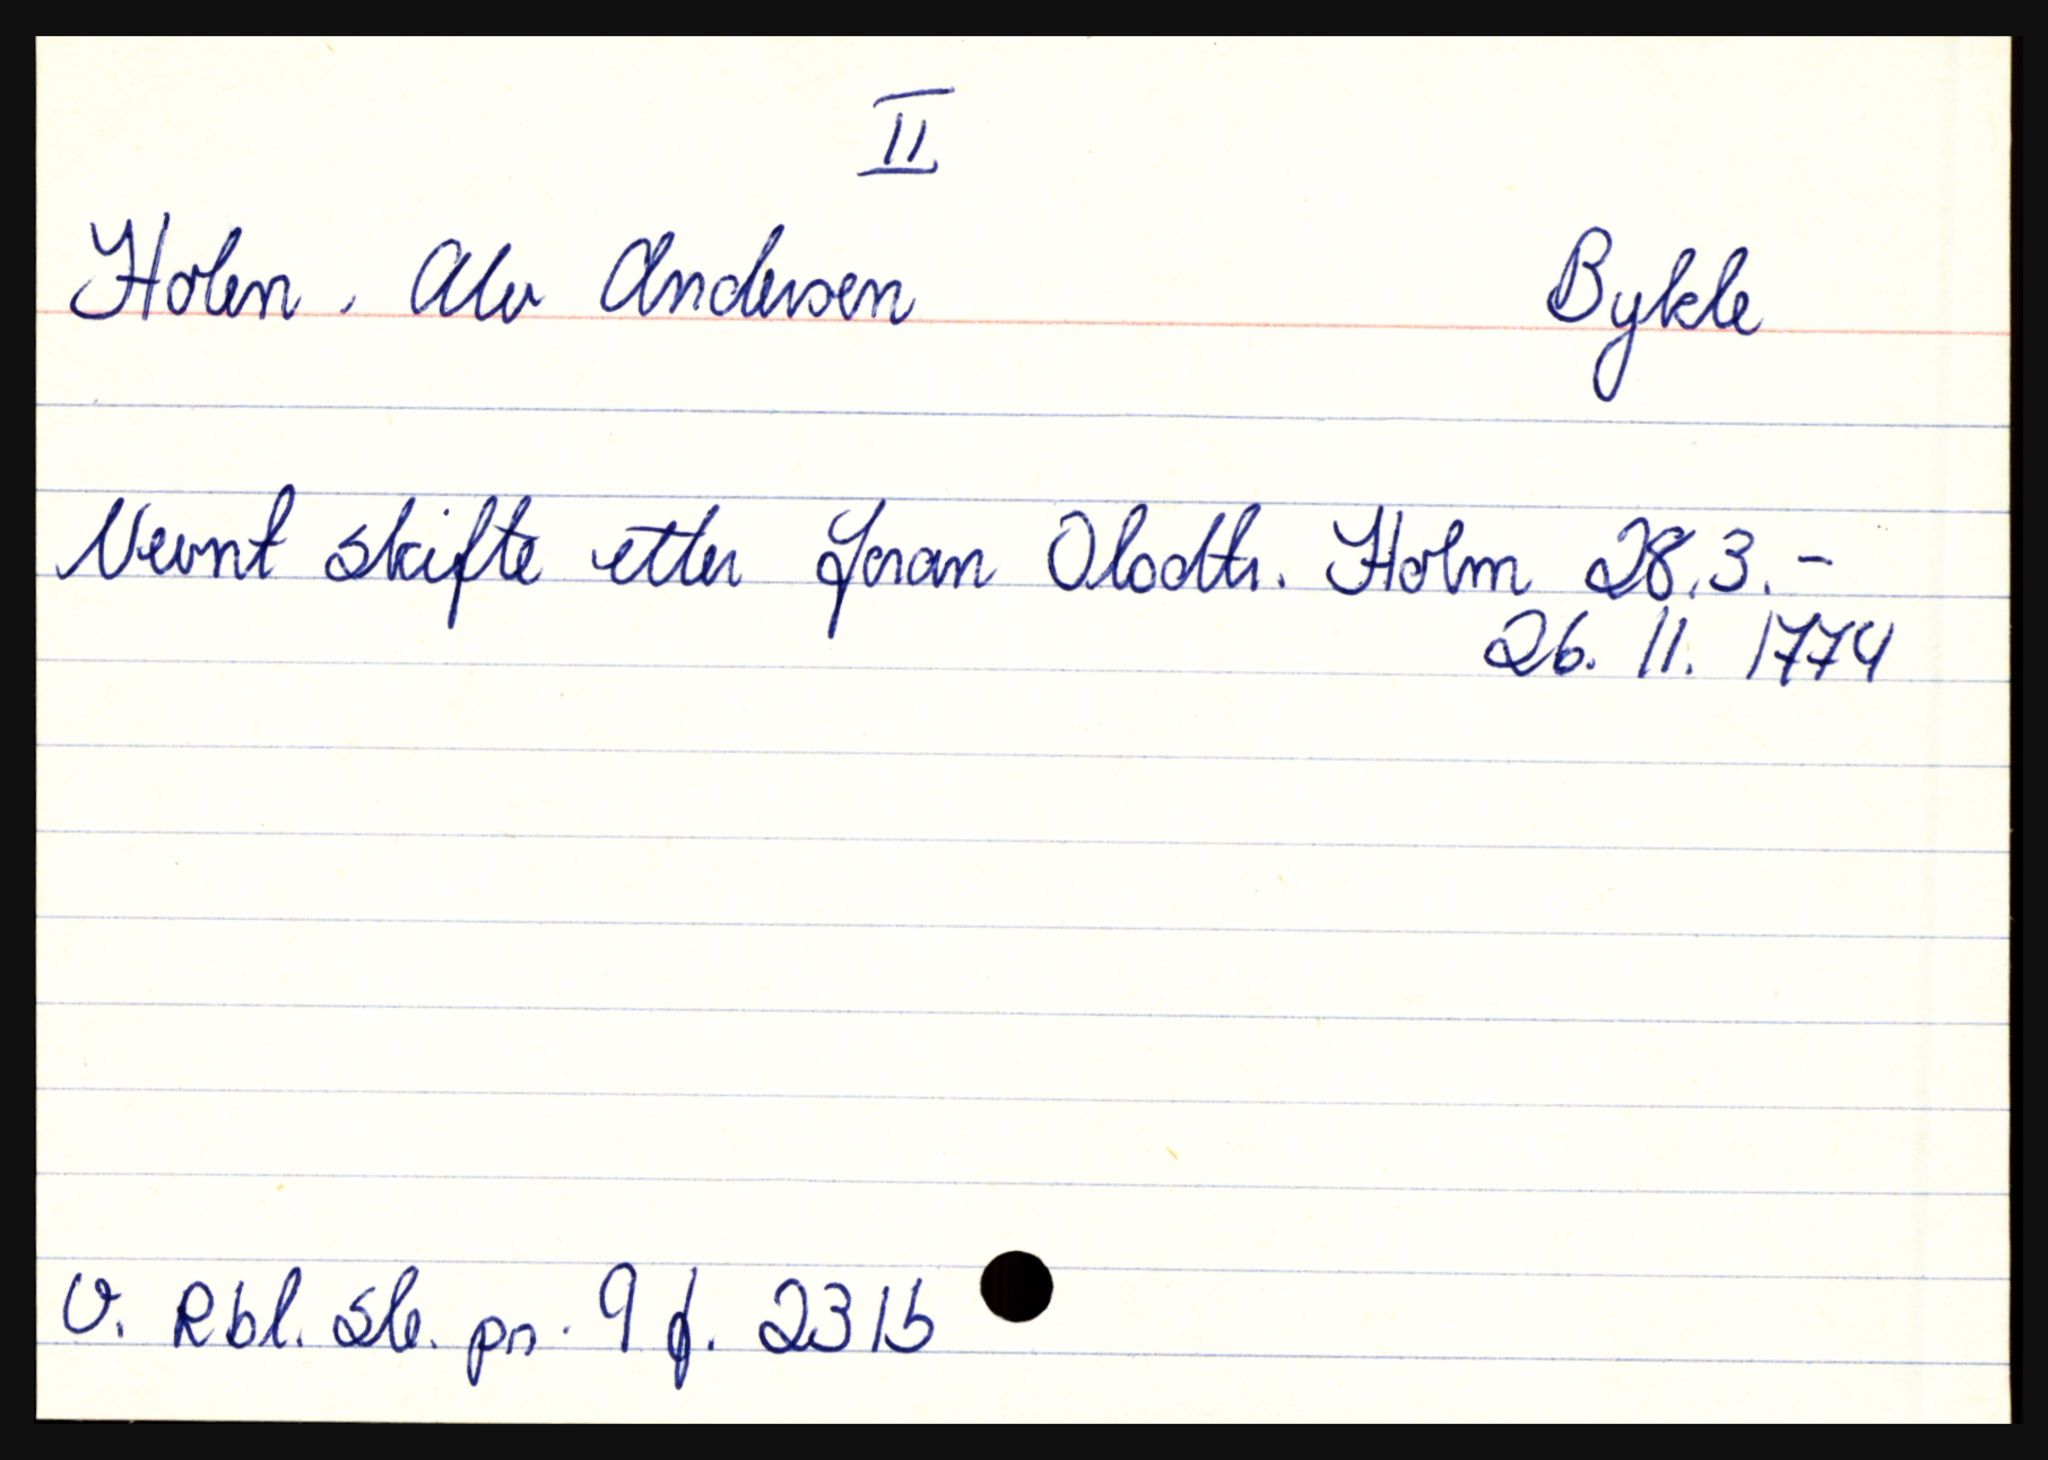 II
Holen, Alv Andersen Bykle
Nevnt skifte etter Joran Olsdtr. Holm 28.3.-
26. 11. 1774
V. Rbl. sk. pr. 9 f. 231b